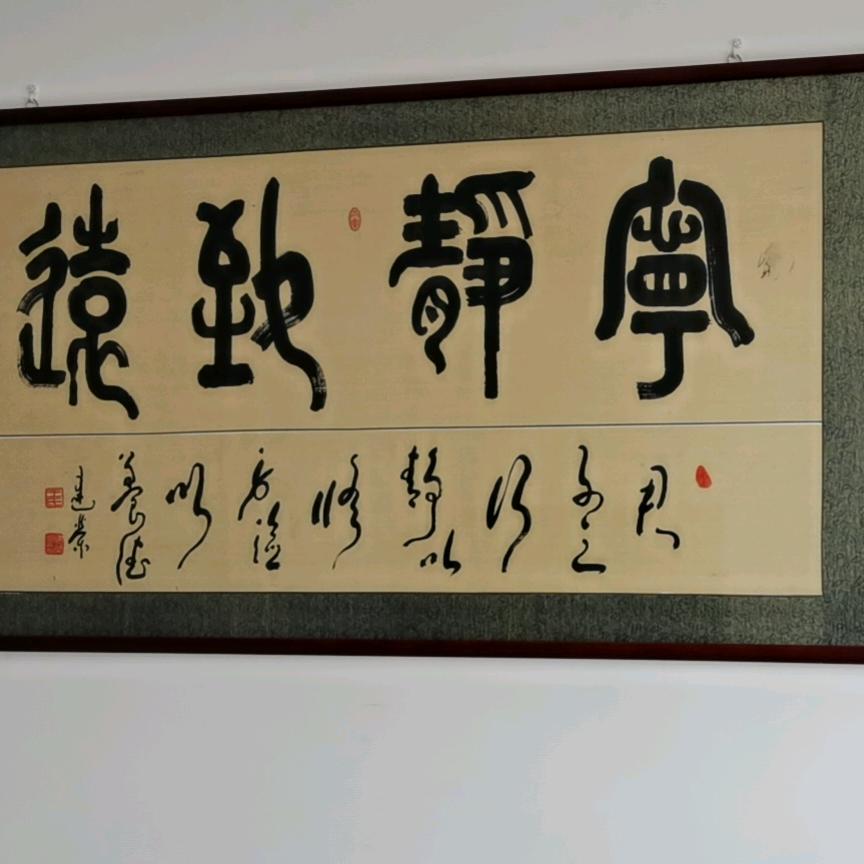 寧靜致遠
君子之行靜以修身儉以養德